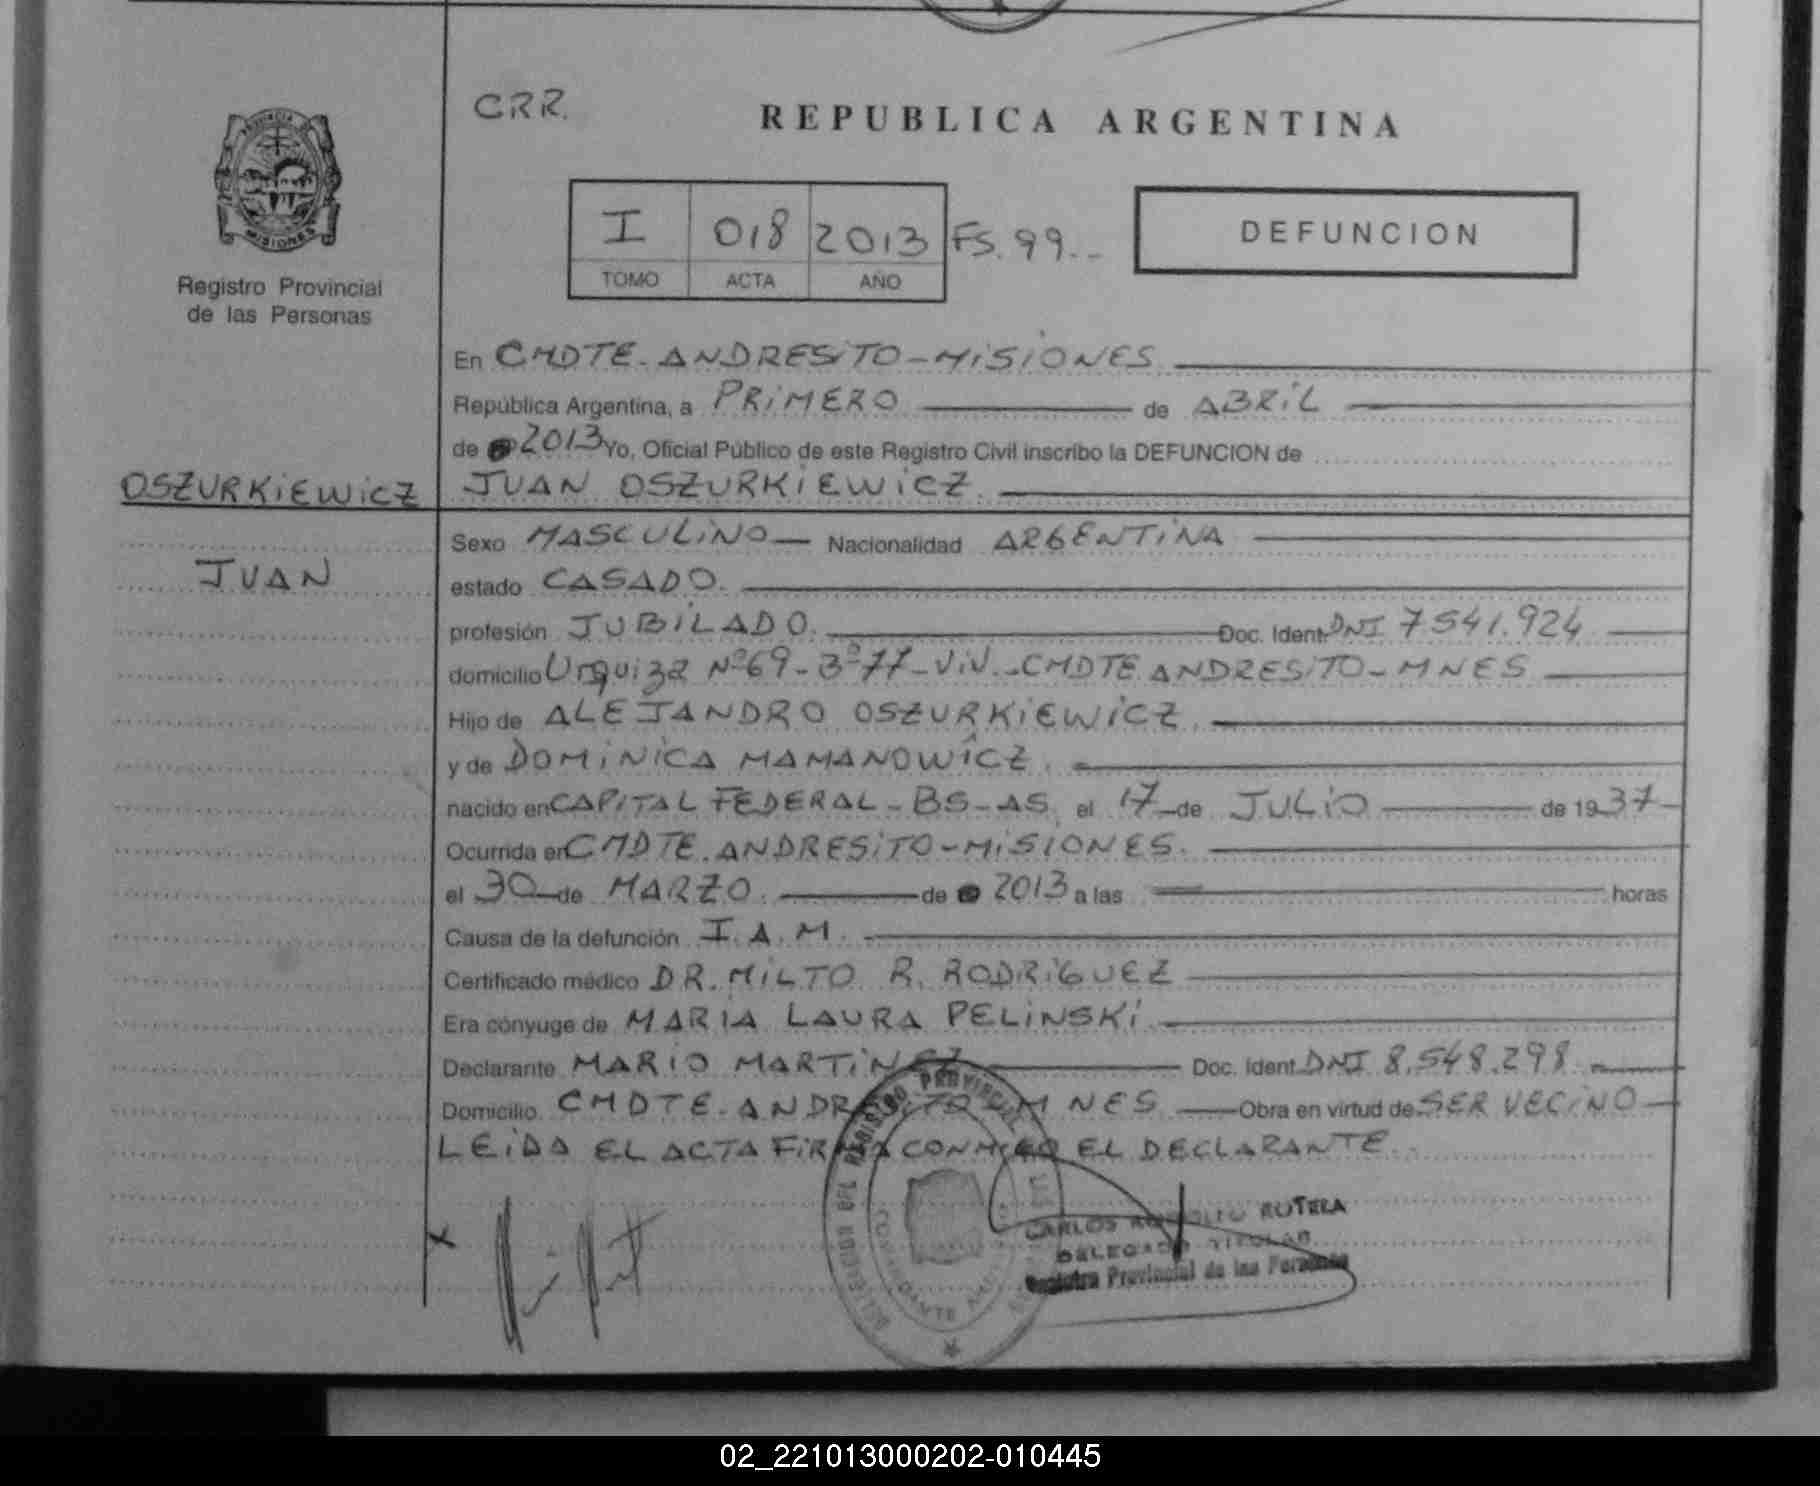 CRR.
REPUBLICA ARGENTINA
PROVINCIA DE
MISIONES
Registro Provincial
de las Personas
I 018 2013 FS. 99.-
TOMO ACTA AÑO
DEFUNCION
En CMDTE. ANDRESITO - MISIONES
República Argentina, a PRIMERO de ABRIL
de 2013 Yo, Oficial Público de este Registro Civil inscribo la DEFUNCION de
OSZURKIEWICZ JUAN OSZURKIEWICZ.
Sexo MASCULINO Nacionalidad ARGENTINA
JUAN
estado CASADO.
profesión JUBILADO. Doc. Ident. DNI 7541.924
domicilio Urquiza Nº 69 - Bº 77 - VIV. - CMDTE ANDRESITO - MNES
Hijo de ALEJANDRO OSZURKIEWICZ.
y de DOMINICA MAMANOWICZ.
nacido en CAPITAL FEDERAL - BS - AS. el 17 de JULIO de 1937
Ocurrida en CMDTE. ANDRESITO - MISIONES.
el 30 de MARZO. de 2013 a las horas
Causa de la defunción I. A. M.
Certificado médico DR. MILTO R. RODRIGUEZ
Era cónyuge de MARIA LAURA PELINSKI
Declarante MARIO MARTINEZ Doc. Ident. DNI 8.548.298
Domicilio CMDTE. ANDRESITO - MNES Obra en virtud de SER VECINO
LEIDA EL ACTA FIRMA CONMIGO EL DECLARANTE.
REGISTRO PROVINCIAL
CARLOS RUTERA
DELEGADO TITULAR
Registro Provincial de las Personas
02_221013000202-010445